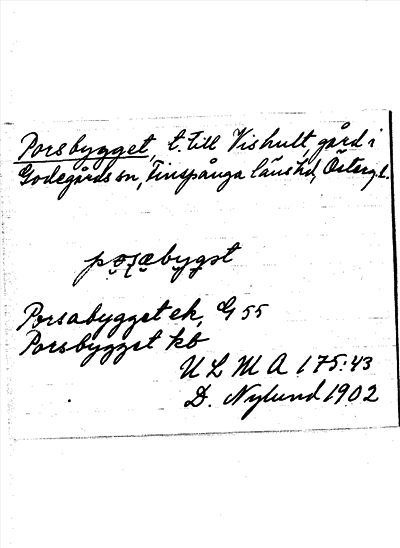 Porsbygget, t. till Vishult, gård i
Godegårds sn, Finspånga länshd, Östergl.
Porsabygget ek, G 55
Porsbygget kb
ULMA 175:43
D. Nylund 1902